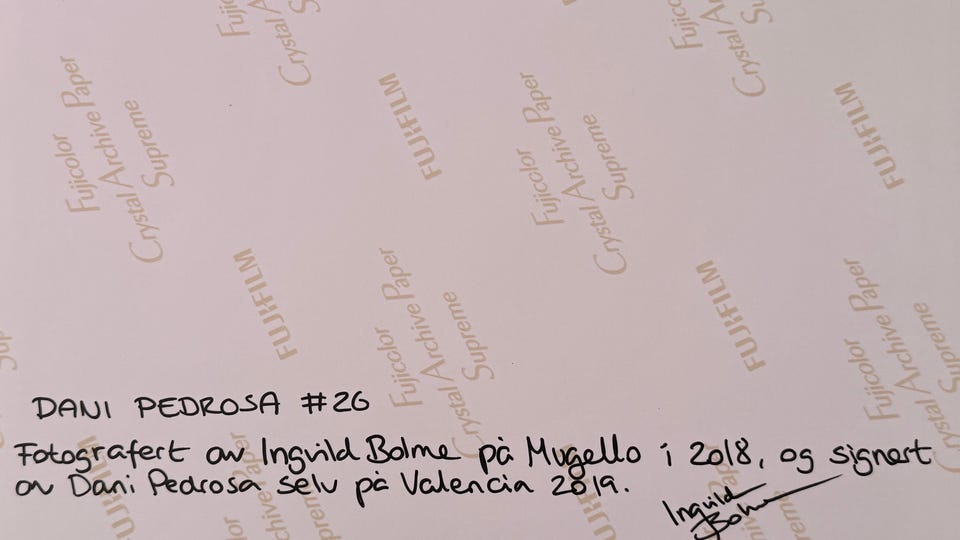 Fujicolor
Crystal Archive Paper
Supreme
FUJIFILM
Fujicolor
Crystal Archive Paper
Supreme
FUJIFILM
FUJIFILM
Fujicolor
Crystal Archive Paper
Supreme
FUJIFILM
Fujicolor
Crystal Archive Paper
Supreme
DANI PEDROSA #26
Fotografert av Ingvild Bolme på Mugello i 2018, og signert
av Dani Pedrosa selv på Valencia 2019.
Ingvild
Bolme